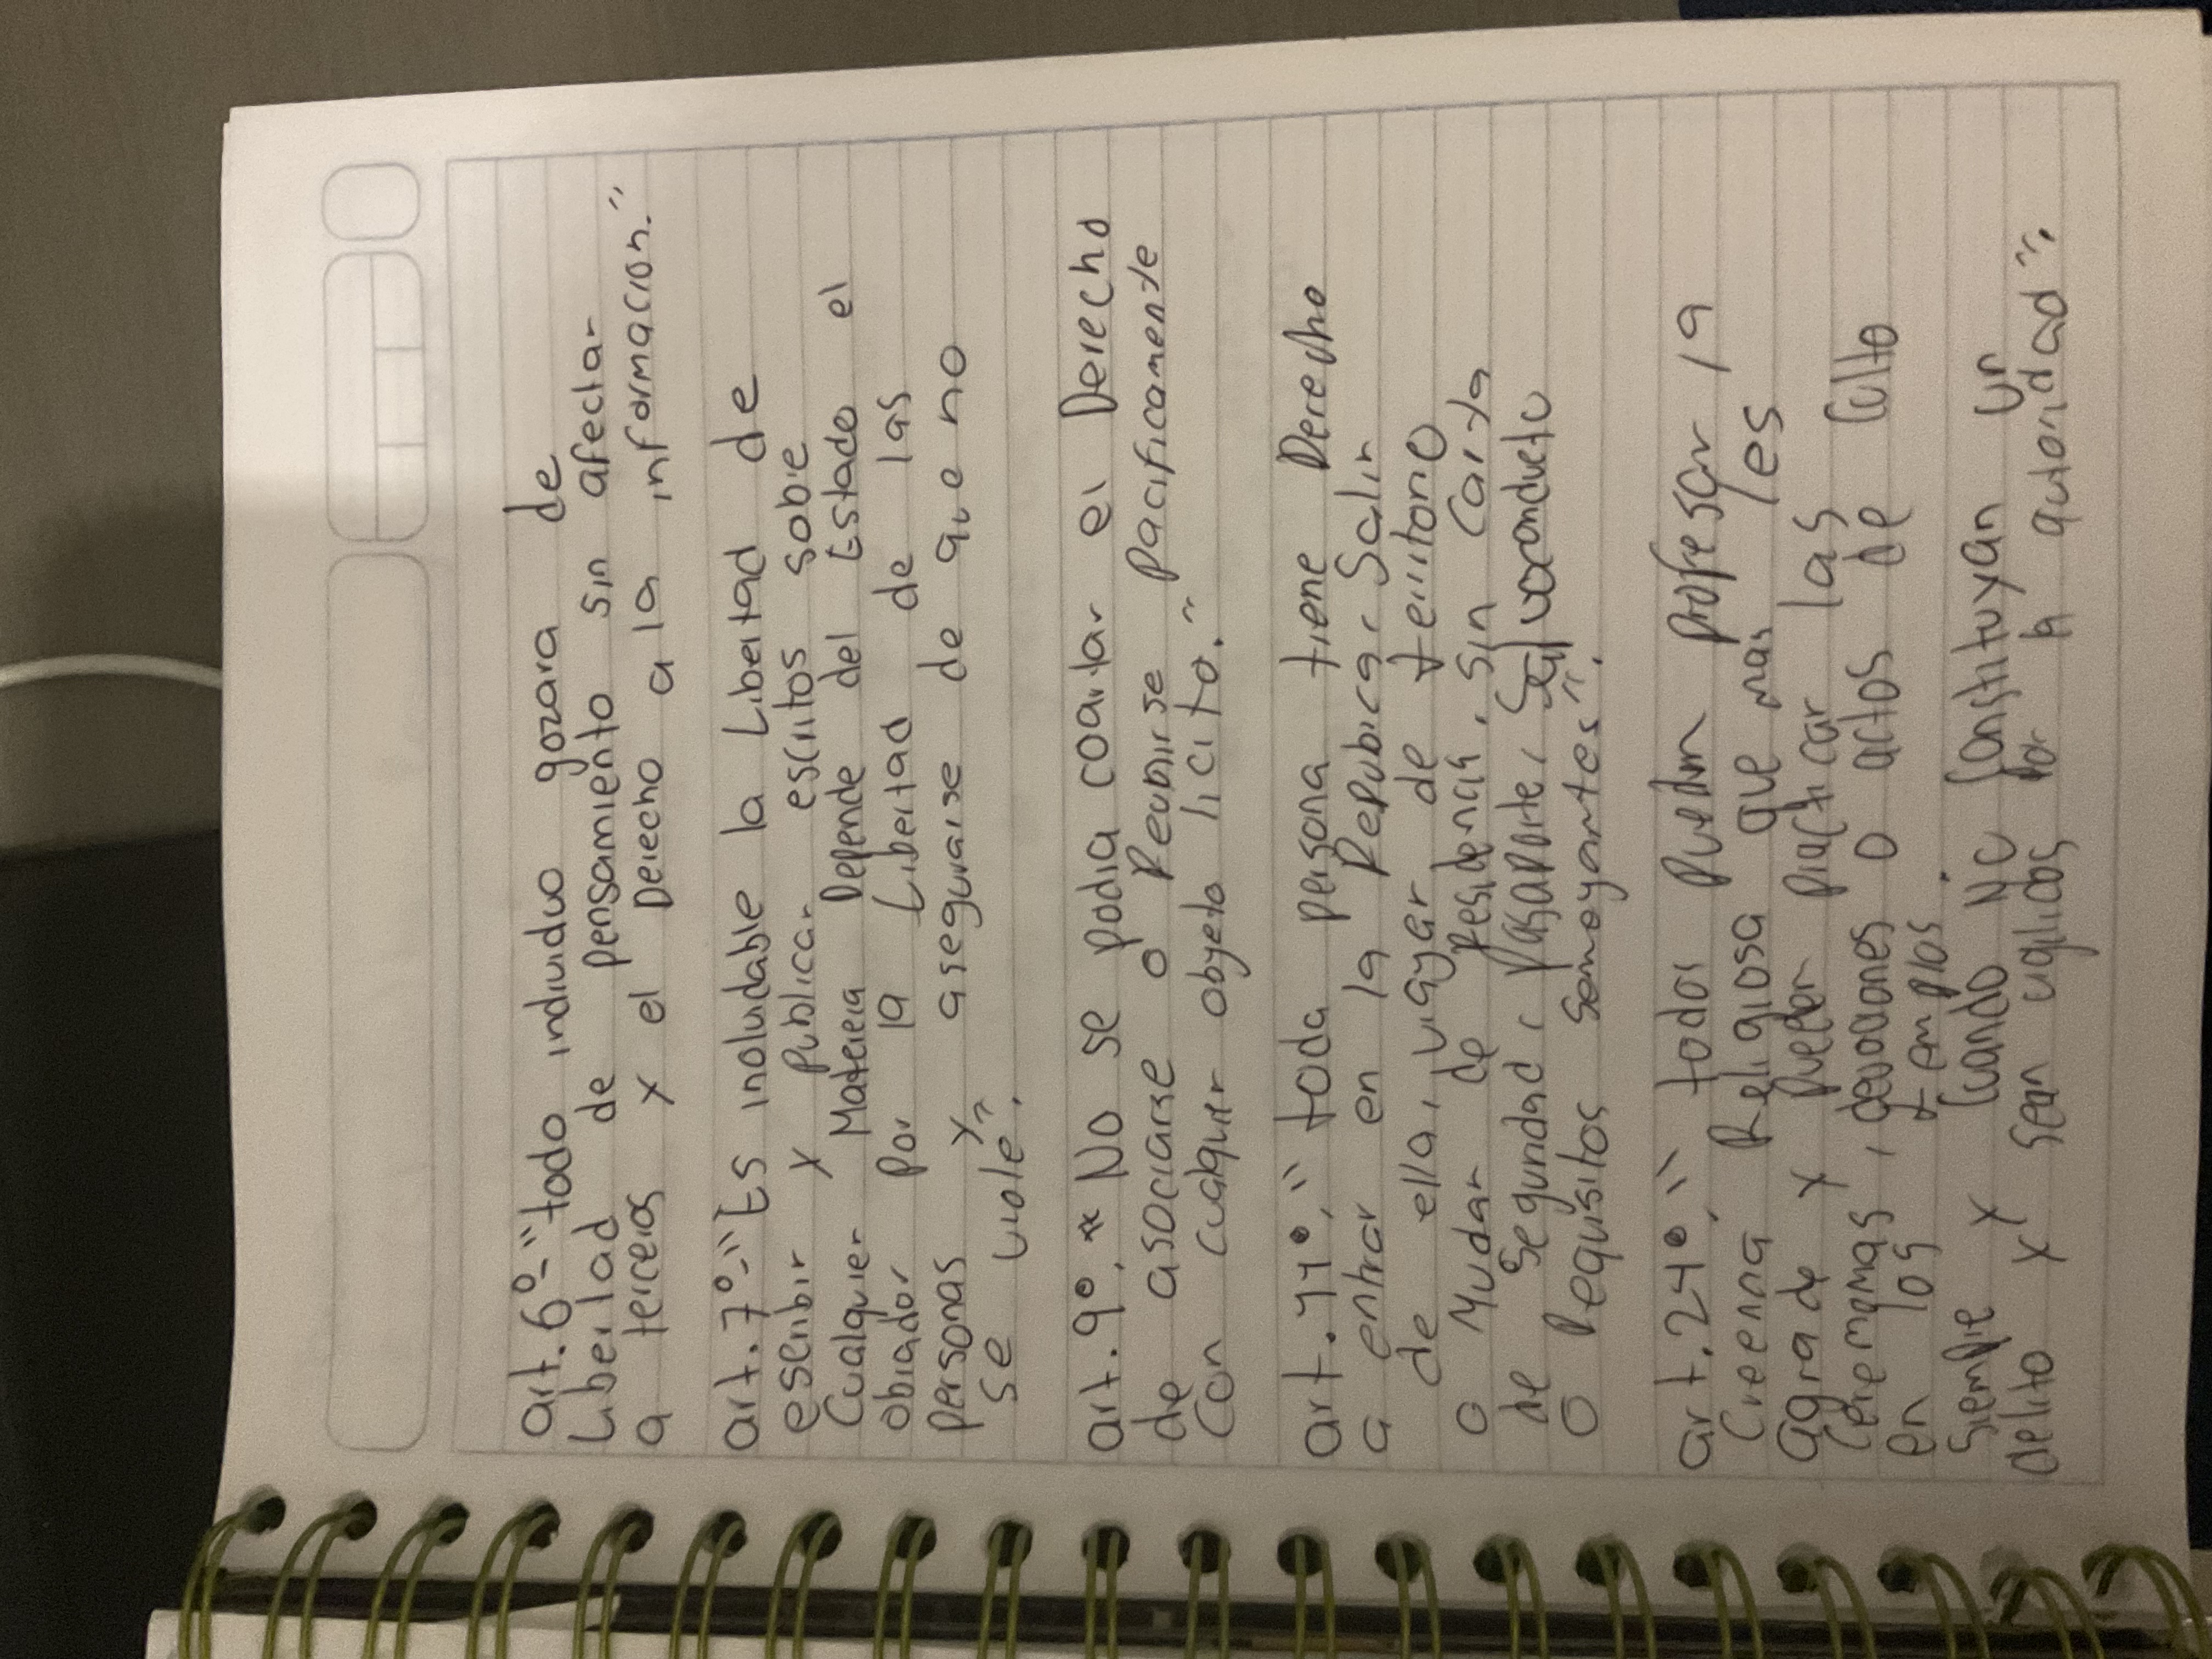 art. 6º-"todo individuo gozara de
Libertad de pensamiento sin afectar
a terceros y el Derecho a la informacion."
art. 7º-"Es inoluidable la Libertad de
esenbir y publicar escritos sobre
Cualquier Matereia Depende del Estado el
obrador por la Libertad de las
personas y asegurarse de que no
se viole".
art. 9º. "No se podia coartar el Derecho
de asociarse o Reunirse pacificamente
Con cualquier objeto licito."
art. 11º. "toda persona tiene Derecho
a entrar en la Republica, Salir
de ella, viajar de territorio
o Mudar de Residencia, sin carta
de Segundad, pasaporte, Salvoconducto
o Requisitos Semoyantes".
art. 24º. "todos pueden profesar la
Creenna Religiosa que mas les
agrade y pueden practicar las
Ceremonias, devociones o actos de Culto
en los templos.
Siempre y Cuando NO Constituyan un
delito y sean por la autoridad".